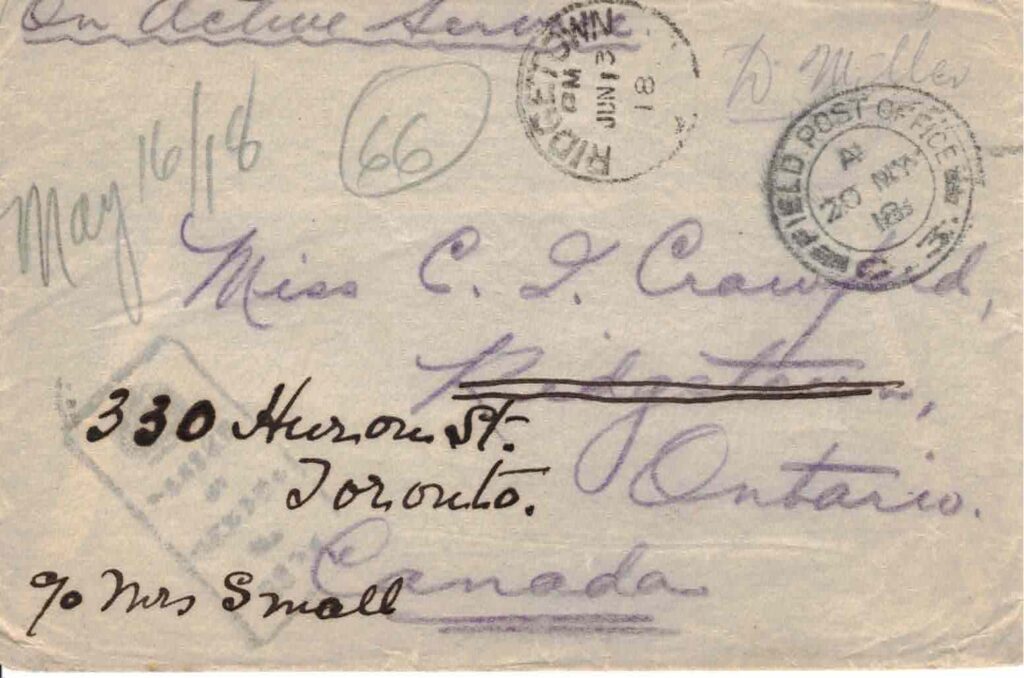 On Active Service
RIDGETOWN
PM
JUN 13
18
D. Miller
FIELD POST OFFICE
A
20 MY
18
3.
May 16/18
66
Miss C. I. Crawford,
Ridgetown,
330 Huron St.
Ontario.
Toronto.
Canada
c/o Mrs Small